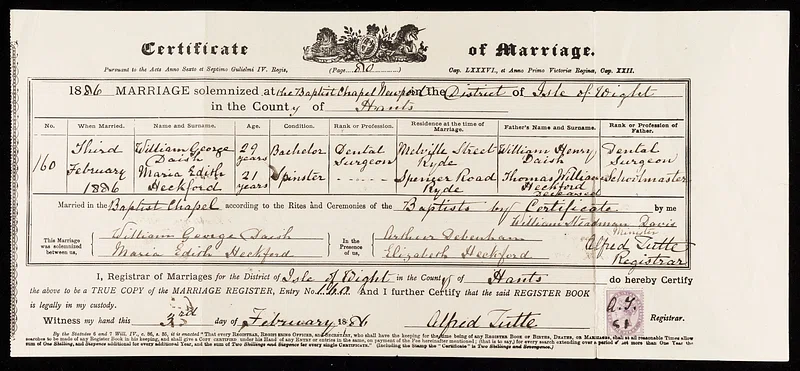 Certificate of Marriage.
Pursuant to the Acts Anno Sexto et Septimo Gulielmi IV. Regis, (Page 80) Cap. LXXXVI., et Anno Primo Victoriæ Reginæ, Cap. XXII.
1886 MARRIAGE solemnized at the Baptist Chapel Newport in the District of Isle of Wight
in the County of Hants
No. When Married. Name and Surname. Age. Condition. Rank or Profession. Residence at the time of Marriage. Father's Name and Surname. Rank or Profession of Father.
160 Third February 1886
William George Daish 29 years Bachelor Dental Surgeon Melville Street Ryde William Henry Daish Dental Surgeon
Maria Edith Heckford 21 years Spinster Spencer Road Ryde Thomas William Heckford deceased Schoolmaster
Married in the Baptist Chapel according to the Rites and Ceremonies of the Baptists by Certificate by me
William Steadman Davis
Minister
This Marriage was solemnized between us, William George Daish In the Presence of us, Arthur Debenham Alfred Tutte
Maria Edith Heckford Elizabeth Heckford Registrar
I, Registrar of Marriages for the District of Isle of Wight in the County of Hants do hereby Certify
the above to be a TRUE COPY of the MARRIAGE REGISTER, Entry No. 160 And I further Certify that the said REGISTER BOOK
is legally in my custody.
A.T.
Witness my hand this 3rd day of February 1886 Alfred Tutte Registrar.
By the Statutes 6 and 7 Will. IV., c. 86, s. 35, it is enacted "That every REGISTRAR, REGISTERING OFFICER, and SECRETARY, who shall have the keeping for the time being of any REGISTER BOOK OF BIRTHS, DEATHS, OR MARRIAGES, shall at all reasonable Times allow
searches to be made of any Register Book in his keeping, and shall give a COPY certified under his Hand of any ENTRY or ENTRIES in the same, on payment of the Fee hereinafter mentioned; (that is to say,) for every search extending over a period not more than One Year the
sum of One Shilling, and Sixpence additional for every additional Year, and the Sum of Two Shillings and Sixpence for every single CERTIFICATE." (Including the Stamp the "Certificate" is Two Shillings and Sevenpence.)